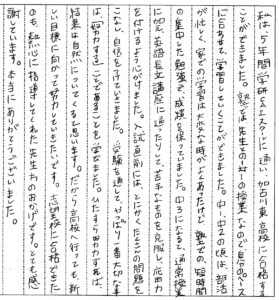 私は5年間学研CAIスクールに通い、加古川東高校に合格する
ことができました。塾では先生との1対1の授業なので自分のペース
に合わせて、学習していくことができました。中1、中2の頃は、部活
が忙しく、家での学習は大変な時がよくあったけど、塾での短時間
の集中した勉強で、成績を保っていました。中3になると、通常授業
に加え、英語長文講座に通ったりして苦手なものを克服し、応用力
を付けるよう心がけました。入試直前には、とにかくたくさんの問題を
こなし、自信を持っていきました。受験を通して、やっぱり一番大切な事
は「努力する」ことであることを学びました。ひたすら努力すれば、
結果は自然についてくると思います。だから高校へ行っても、新
しい目標に向かって努力していきたいです。志望校に合格できた
のも、熱心に指導してくれた先生方のおかげです。とても感
謝しています。本当にありがとうございました。